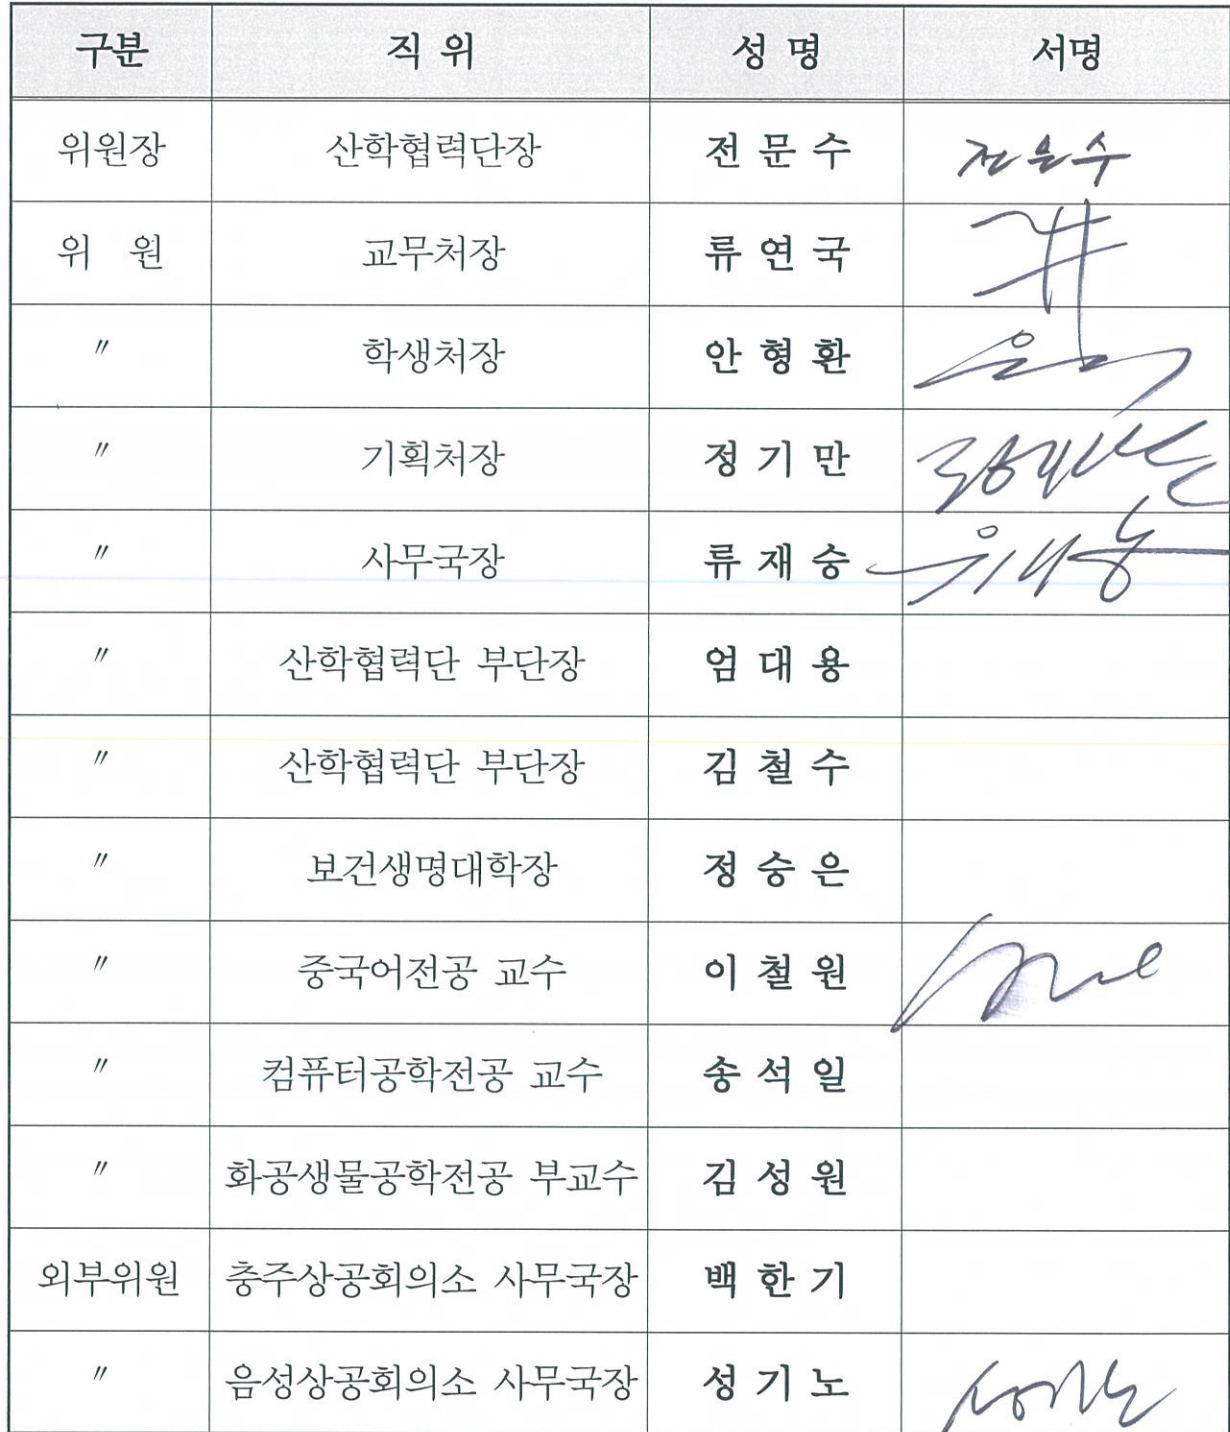 구분 직 위 성 명 서명
위원장 산학협력단장 전 문 수 전문수
위 원 교무처장 류 연 국
〃 학생처장 안 형 환
〃 기획처장 정 기 만 정기만
〃 사무국장 류 재 승 류재승
〃 산학협력단 부단장 엄 대 용
〃 산학협력단 부단장 김 철 수
〃 보건생명대학장 정 승 은
〃 중국어전공 교수 이 철 원
〃 컴퓨터공학전공 교수 송 석 일
〃 화공생물공학전공 부교수 김 성 원
외부위원 충주상공회의소 사무국장 백 한 기
〃 음성상공회의소 사무국장 성 기 노 성기노